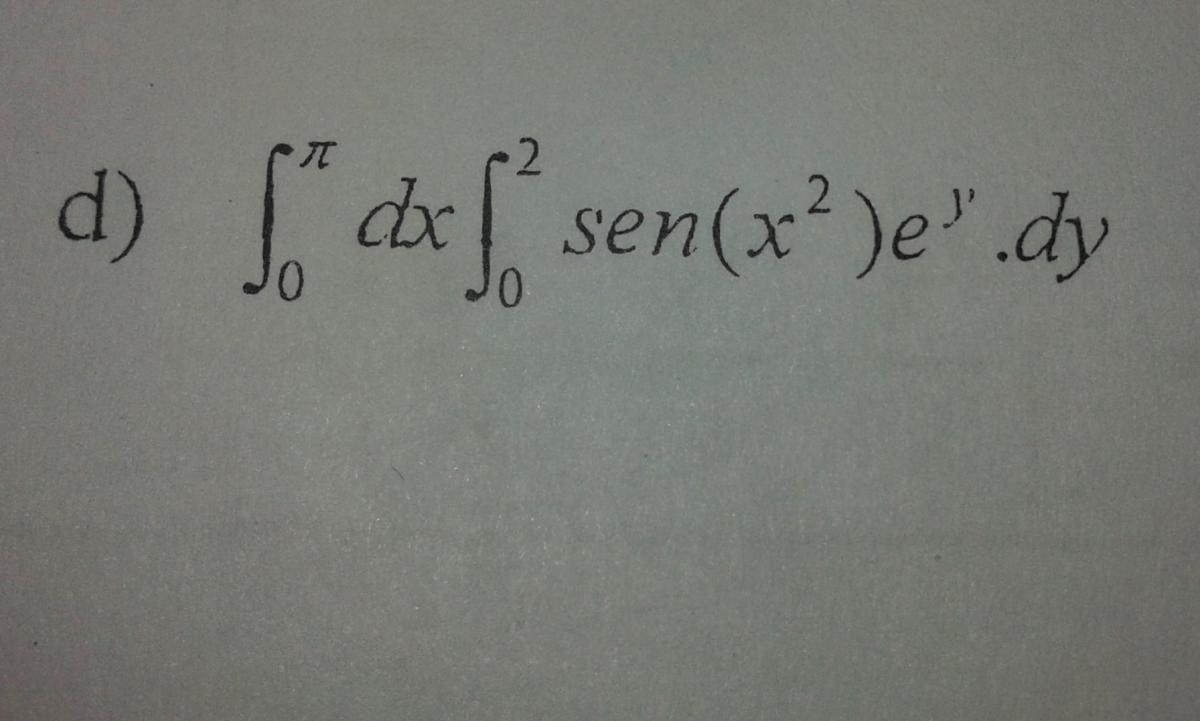 d) ∫₀^π dx ∫₀² sen(x²)eʸ .dy